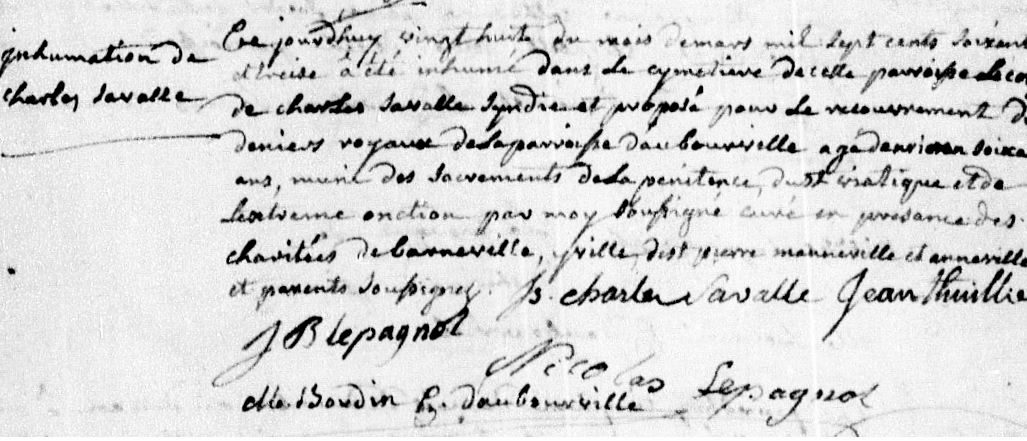 inhumation de
charles Savalle
Ce jourdhuy vingt huit du mois de mars mil sept cents soixan
et treise à été inhumé dans le cymetiere de cette parroisse le co
de charles Savalle Syndic et proposé pour le recouvrement d
deniers royaux de la parroisse daubourville agé denviron soixa
ans, muni des Sacrements de la penitence, du St viatique et de
lextreme onction par moy Soussigné curé en presance des
charitées de barneville, yville, de st pierre manneville et anneville
et parents Soussignez. charles Savalle Jean thuillie
J B lepagnol
Nicolas Lepagnol
Bourdin daubourville